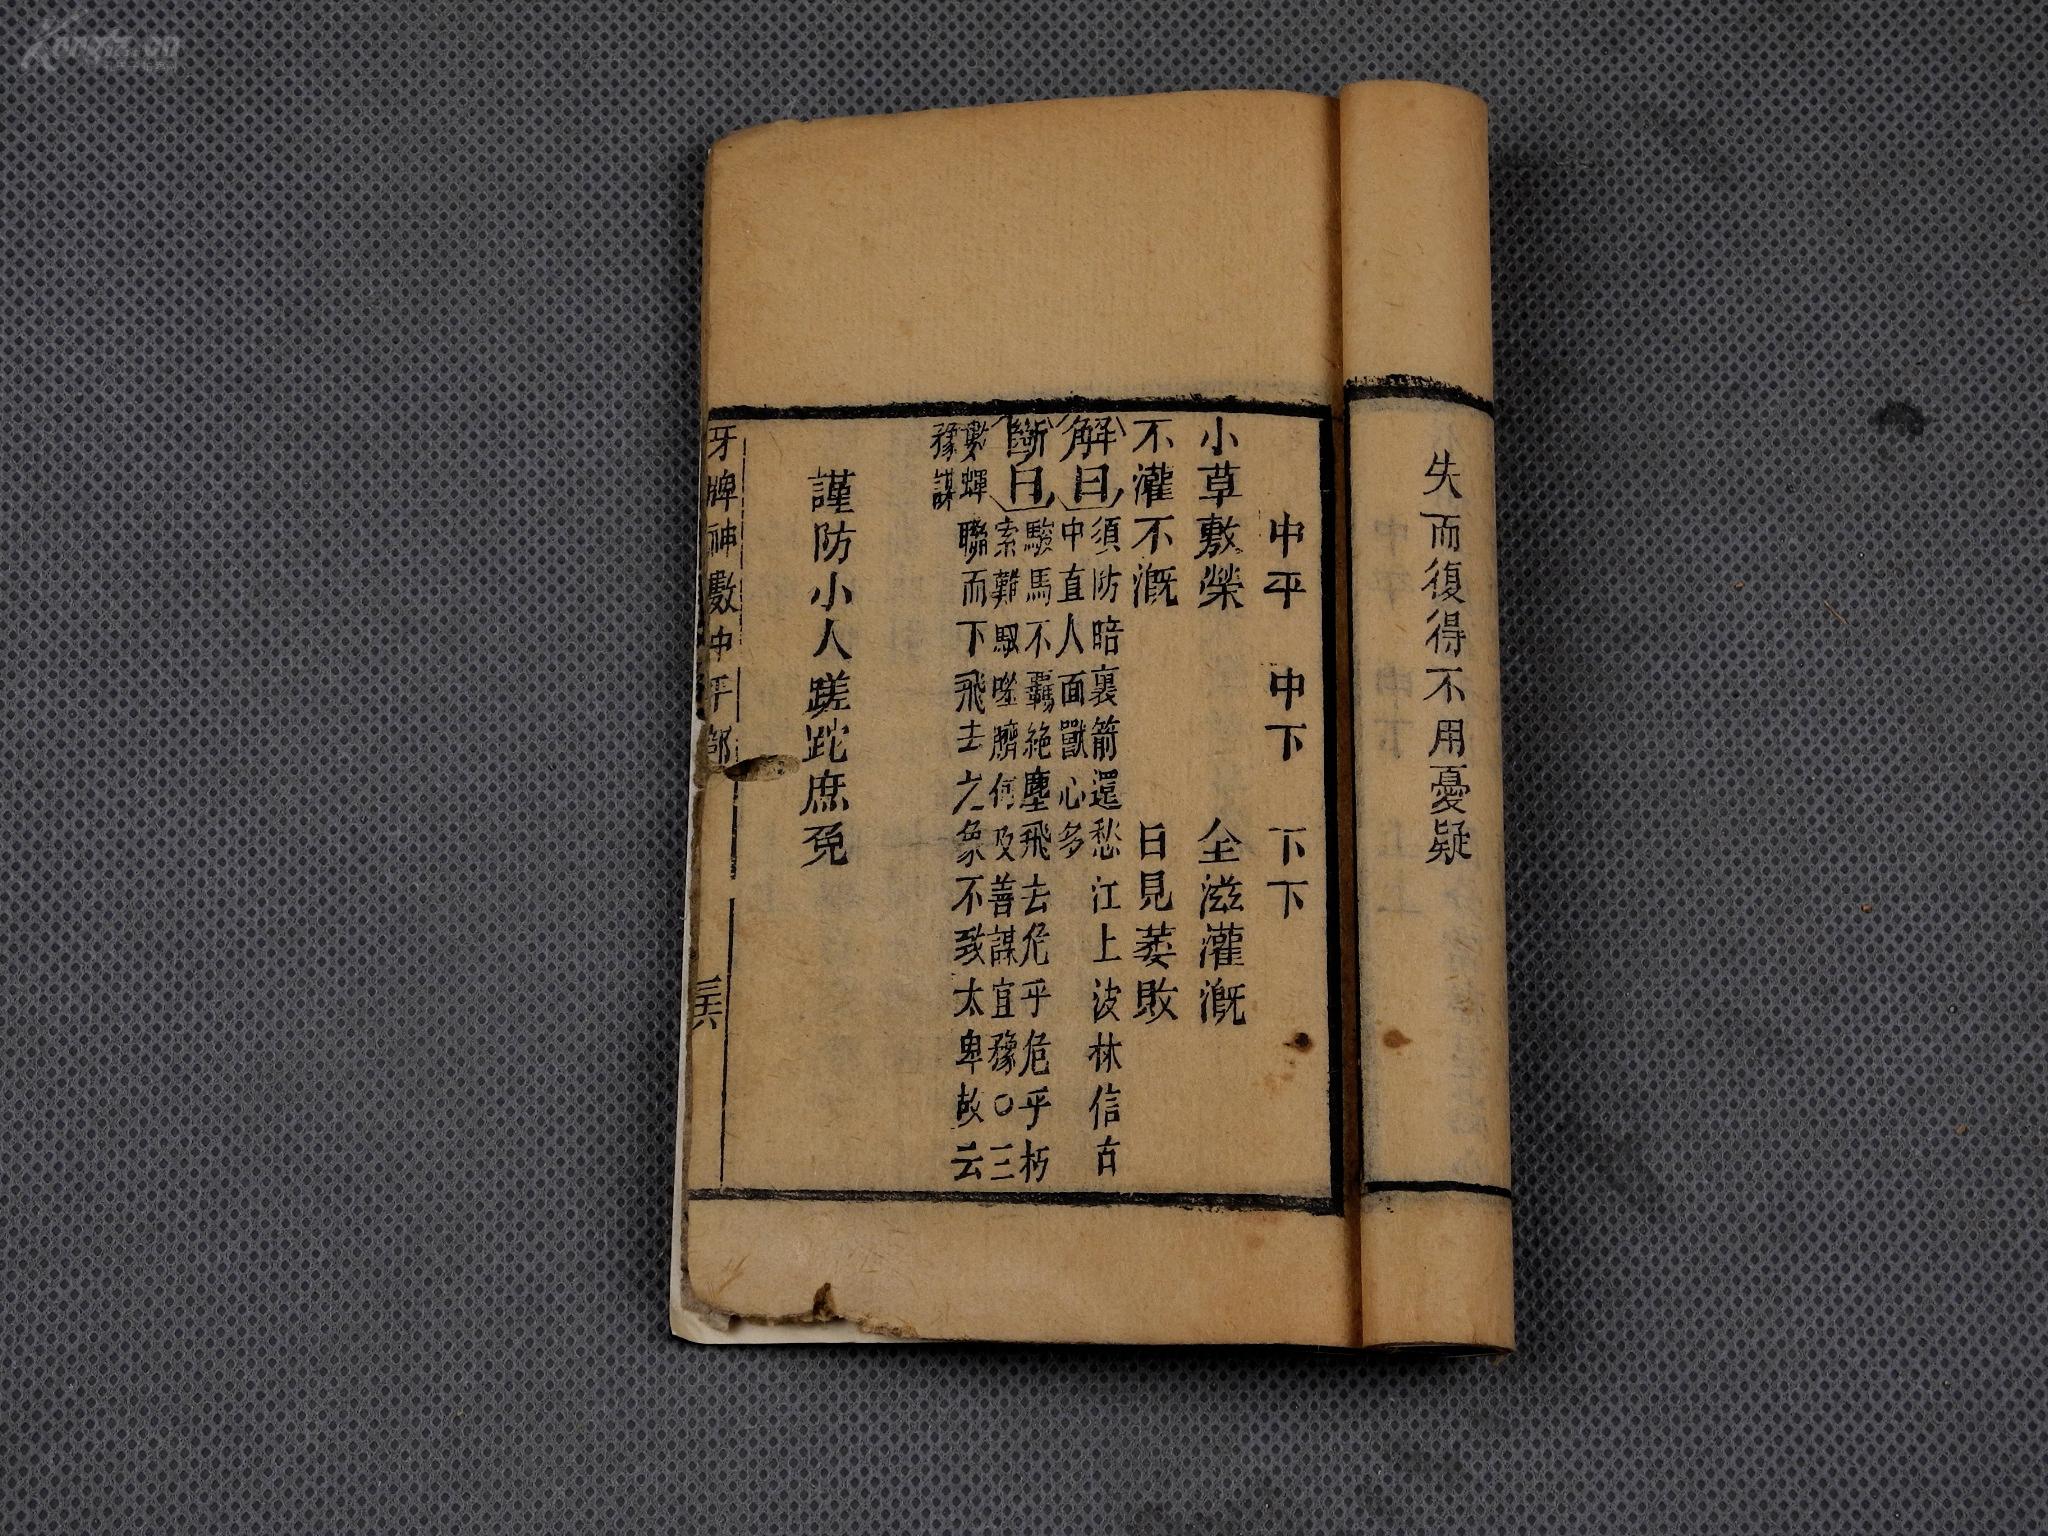 失而復得不用憂疑
中平　中下　下下
小草敷榮　全滋灌溉
不灌不溉　日見萎敗
解曰
須防暗裏箭還愁江上波林信古
中直人面獸心多
斷曰
駿馬不羈絶塵飛去危乎危乎朽
索難馭噬臍何及善謀宜豫○三
數蟬聯而下飛去之象不致太卑故云
豫謀
謹防小人蹉跎庶免
牙牌神數中平部
三六